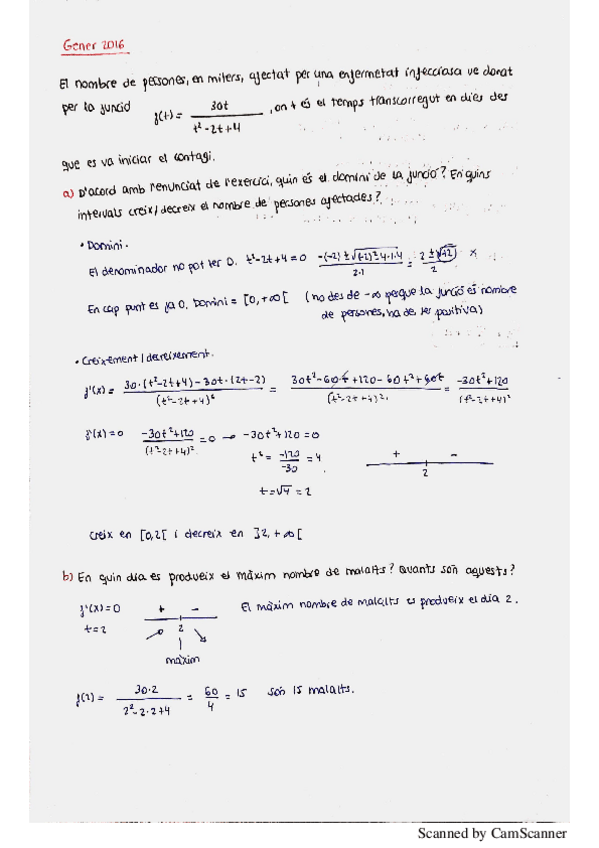 Gener 2016
El nombre de persones, en milers, afectat per una enfermetat infecciosa ve donat
per la funció f(t) = 30t / t²-2t+4 , on t és el temps transcorregut en dies des
que es va iniciar el contagi.
a) D'acord amb l'enunciat de l'exercici, quin és el domini de la funció? En quins
intervals creix/decreix el nombre de persones afectades?
• Domini.
El denominador no pot ser 0. t²-2t+4=0 -(-2)±√(-2)±4·1·4 / 2·1 = 2±√-12 / 2 x
En cap punt es fa 0. Domini = [0,+∞[ (no des de -∞ perquè la funció és nombre
de persones, ha de ser positiva)
• Creixement / decreixement.
f'(x) = 30·(t²-2t+4)-30t·(2t-2) / (t²-2t+4)² = 30t²-60t+120-60t²+60t / (t²-2t+4)² = -30t²+120 / (t²-2t+4)²
f'(x)=0 -30t²+120 / (t²-2t+4)² = 0 → -30t²+120=0
t² = -120 / -30 = 4 + -
2
t=√4 = 2
Creix en [0,2[ i decreix en ]2,+∞[
b) En quin dia es produeix el màxim nombre de malalts? Quants són aquests?
f'(x)=0 + - El màxim nombre de malalts es produeix el dia 2.
t=2 2
màxim
f(2) = 30·2 / 2²-2·2+4 = 60 / 4 = 15 són 15 malalts.
Scanned by CamScanner